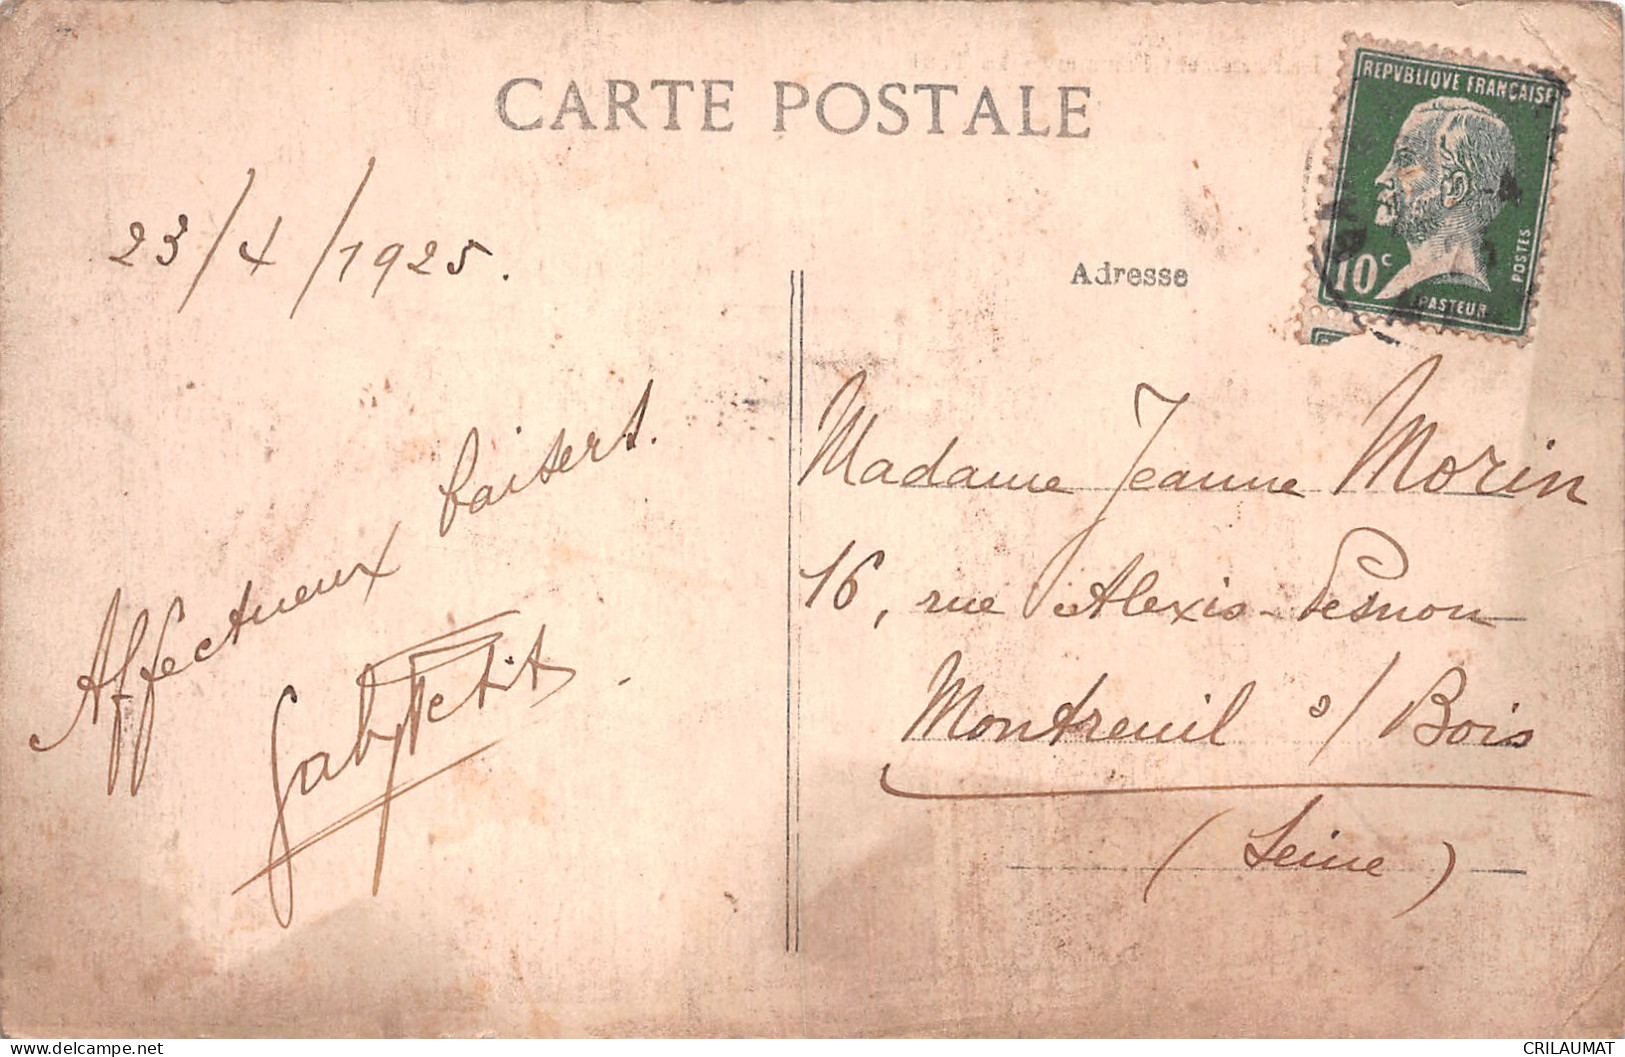 CARTE POSTALE
REPVBLIQVE FRANÇAISE
10c
POSTES
PASTEUR
23/4/1925.
Adresse
Affectueux baisers.
Gaby Petit
Madame Jeanne Morin
16, rue Alexis-Pesnon
Montreuil s/ Bois
(Seine)
delcampe.net
CRILAUMAT